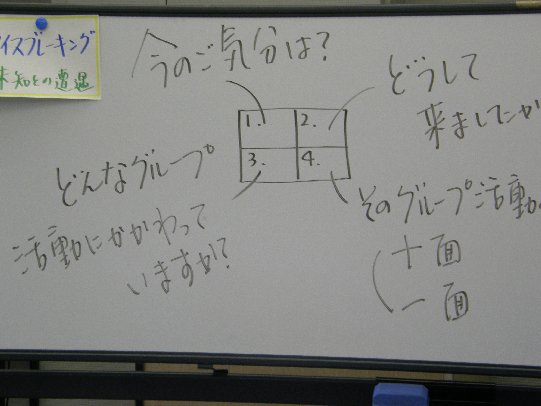 イスブレーキング
未知との遭遇
今のご気分は?
どうして
来ましたか
1. 2.
3. 4.
どんなグループ
活動にかかわって
いますか?
そのグループ活動
+面
-面